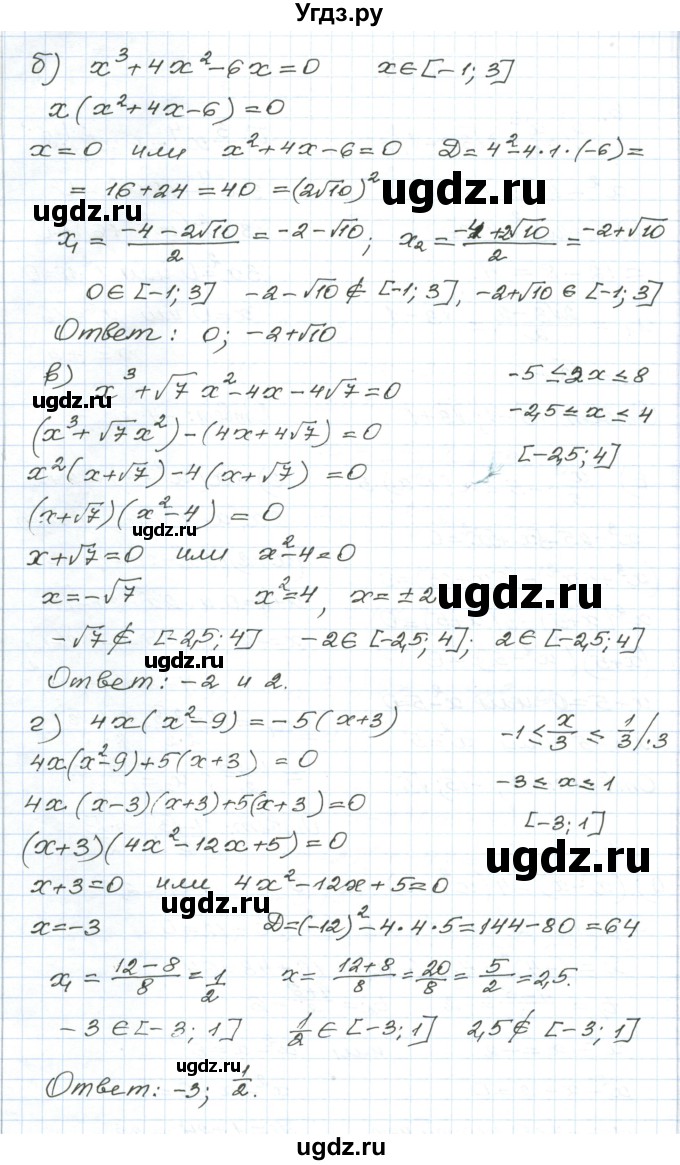 Угдз.ру
б) x³+4x²-6x=0 x∈[-1; 3]
x(x²+4x-6)=0
x=0 или x²+4x-6=0 D=4²-4·1·(-6)=
= 16+24=40 =(2√10)²
ugdz.ru
ugdz.ru
x₁ = (-4-2√10)/2 = -2-√10; x₂ = (-4+2√10)/2 = -2+√10
0∈[-1; 3] -2-√10∉[-1; 3], -2+√10∈[-1; 3]
Ответ: 0; -2+√10
в) x³+√7x²-4x-4√7=0 -5≤2x≤8
ugdz.ru
(x³+√7x²)-(4x+4√7)=0 -2,5≤x≤4
x²(x+√7)-4(x+√7)=0 [-2,5; 4]
(x+√7)(x²-4)=0
ugdz.ru
x+√7=0 или x²-4=0
x=-√7 x²=4, x=±2
ugdz.ru
-√7∉[-2,5; 4] -2∈[-2,5; 4]; 2∈[-2,5; 4]
ugdz.ru
Ответ: -2 и 2.
г) 4x(x²-9)=-5(x+3) -1≤x/3≤1/3 /·3
4x(x²-9)+5(x+3)=0 -3≤x≤1
4x·(x-3)(x+3)+5(x+3)=0 [-3; 1]
(x+3)(4x²-12x+5)=0
ugdz.ru
x+3=0 или 4x²-12x+5=0
ugdz.ru
x=-3 D=(-12)²-4·4·5=144-80=64
x₁ = (12-8)/8 = 1/2 x = (12+8)/8 = 20/8 = 5/2 = 2,5.
-3∈[-3; 1] 1/2∈[-3; 1] 2,5∉[-3; 1]
ugdz.ru
Ответ: -3; 1/2.
ugdz.ru